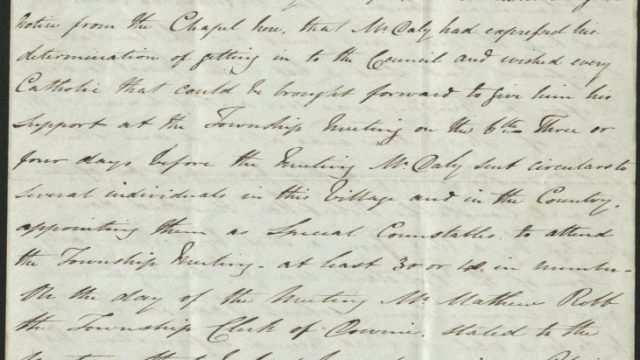 notice from the Chapel here, that Mr Daly had expressed his
determination of getting in to the Council and wished every
Catholic that could be brought forward to give him his
support at the Township Meeting on the 6th Three or
four days before the Meeting Mr Daly sent circulars to
several individuals in this Village and in the Country,
appointing them as Special Counstables to attend
the Township Meeting - at least 30 or 40 in number -
On the day of the Meeting Mr Mathew Robb
the Township Clerk of Downie stated to the